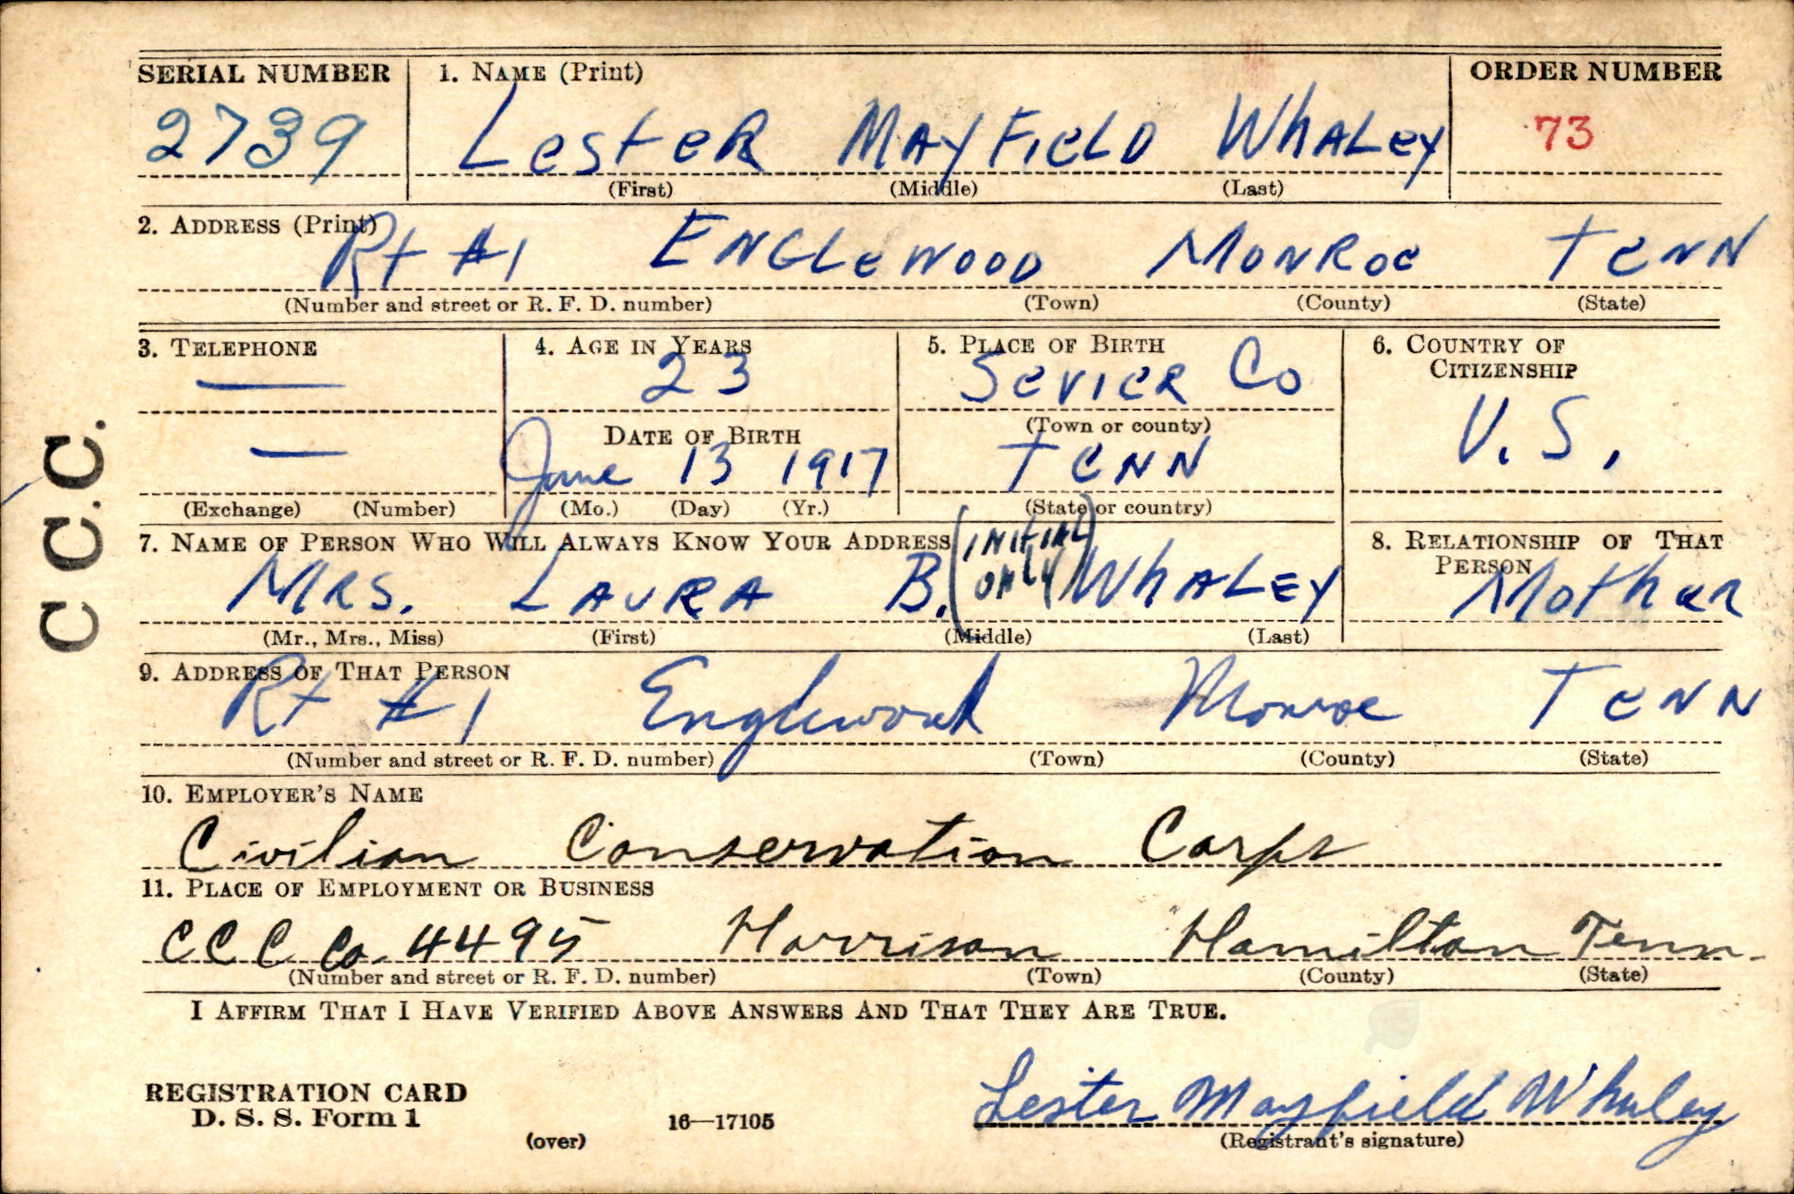 SERIAL NUMBER 1. NAME (Print) ORDER NUMBER
2739 LesteR MAYField WhALey 73
(First) (Middle) (Last)
2. ADDRESS (Print)
Rt #1 ENGLeWOOD MONROe TeNN
(Number and street or R. F. D. number) (Town) (County) (State)
3. TELEPHONE 4. AGE IN YEARS 5. PLACE OF BIRTH 6. COUNTRY OF CITIZENSHIP
— 23 SevieR Co
DATE OF BIRTH (Town or county) U.S.
— June 13 1917 TeNN
(Exchange) (Number) (Mo.) (Day) (Yr.) (State or country)
7. NAME OF PERSON WHO WILL ALWAYS KNOW YOUR ADDRESS 8. RELATIONSHIP OF THAT PERSON
MRS. LAURA B. (INITIAL ONLY) WhALEY Mother
(Mr., Mrs., Miss) (First) (Middle) (Last)
9. ADDRESS OF THAT PERSON
Rt #1 Englewood Monroe TeNN
(Number and street or R. F. D. number) (Town) (County) (State)
10. EMPLOYER'S NAME
Civilian Conservation Corps
11. PLACE OF EMPLOYMENT OR BUSINESS
CCC Co. 4495 Harrison Hamilton Tenn.
(Number and street or R. F. D. number) (Town) (County) (State)
I AFFIRM THAT I HAVE VERIFIED ABOVE ANSWERS AND THAT THEY ARE TRUE.
REGISTRATION CARD
D. S. S. Form 1
(over)
16—17105
Lester Mayfield Whaley
(Registrant's signature)
C C.C.